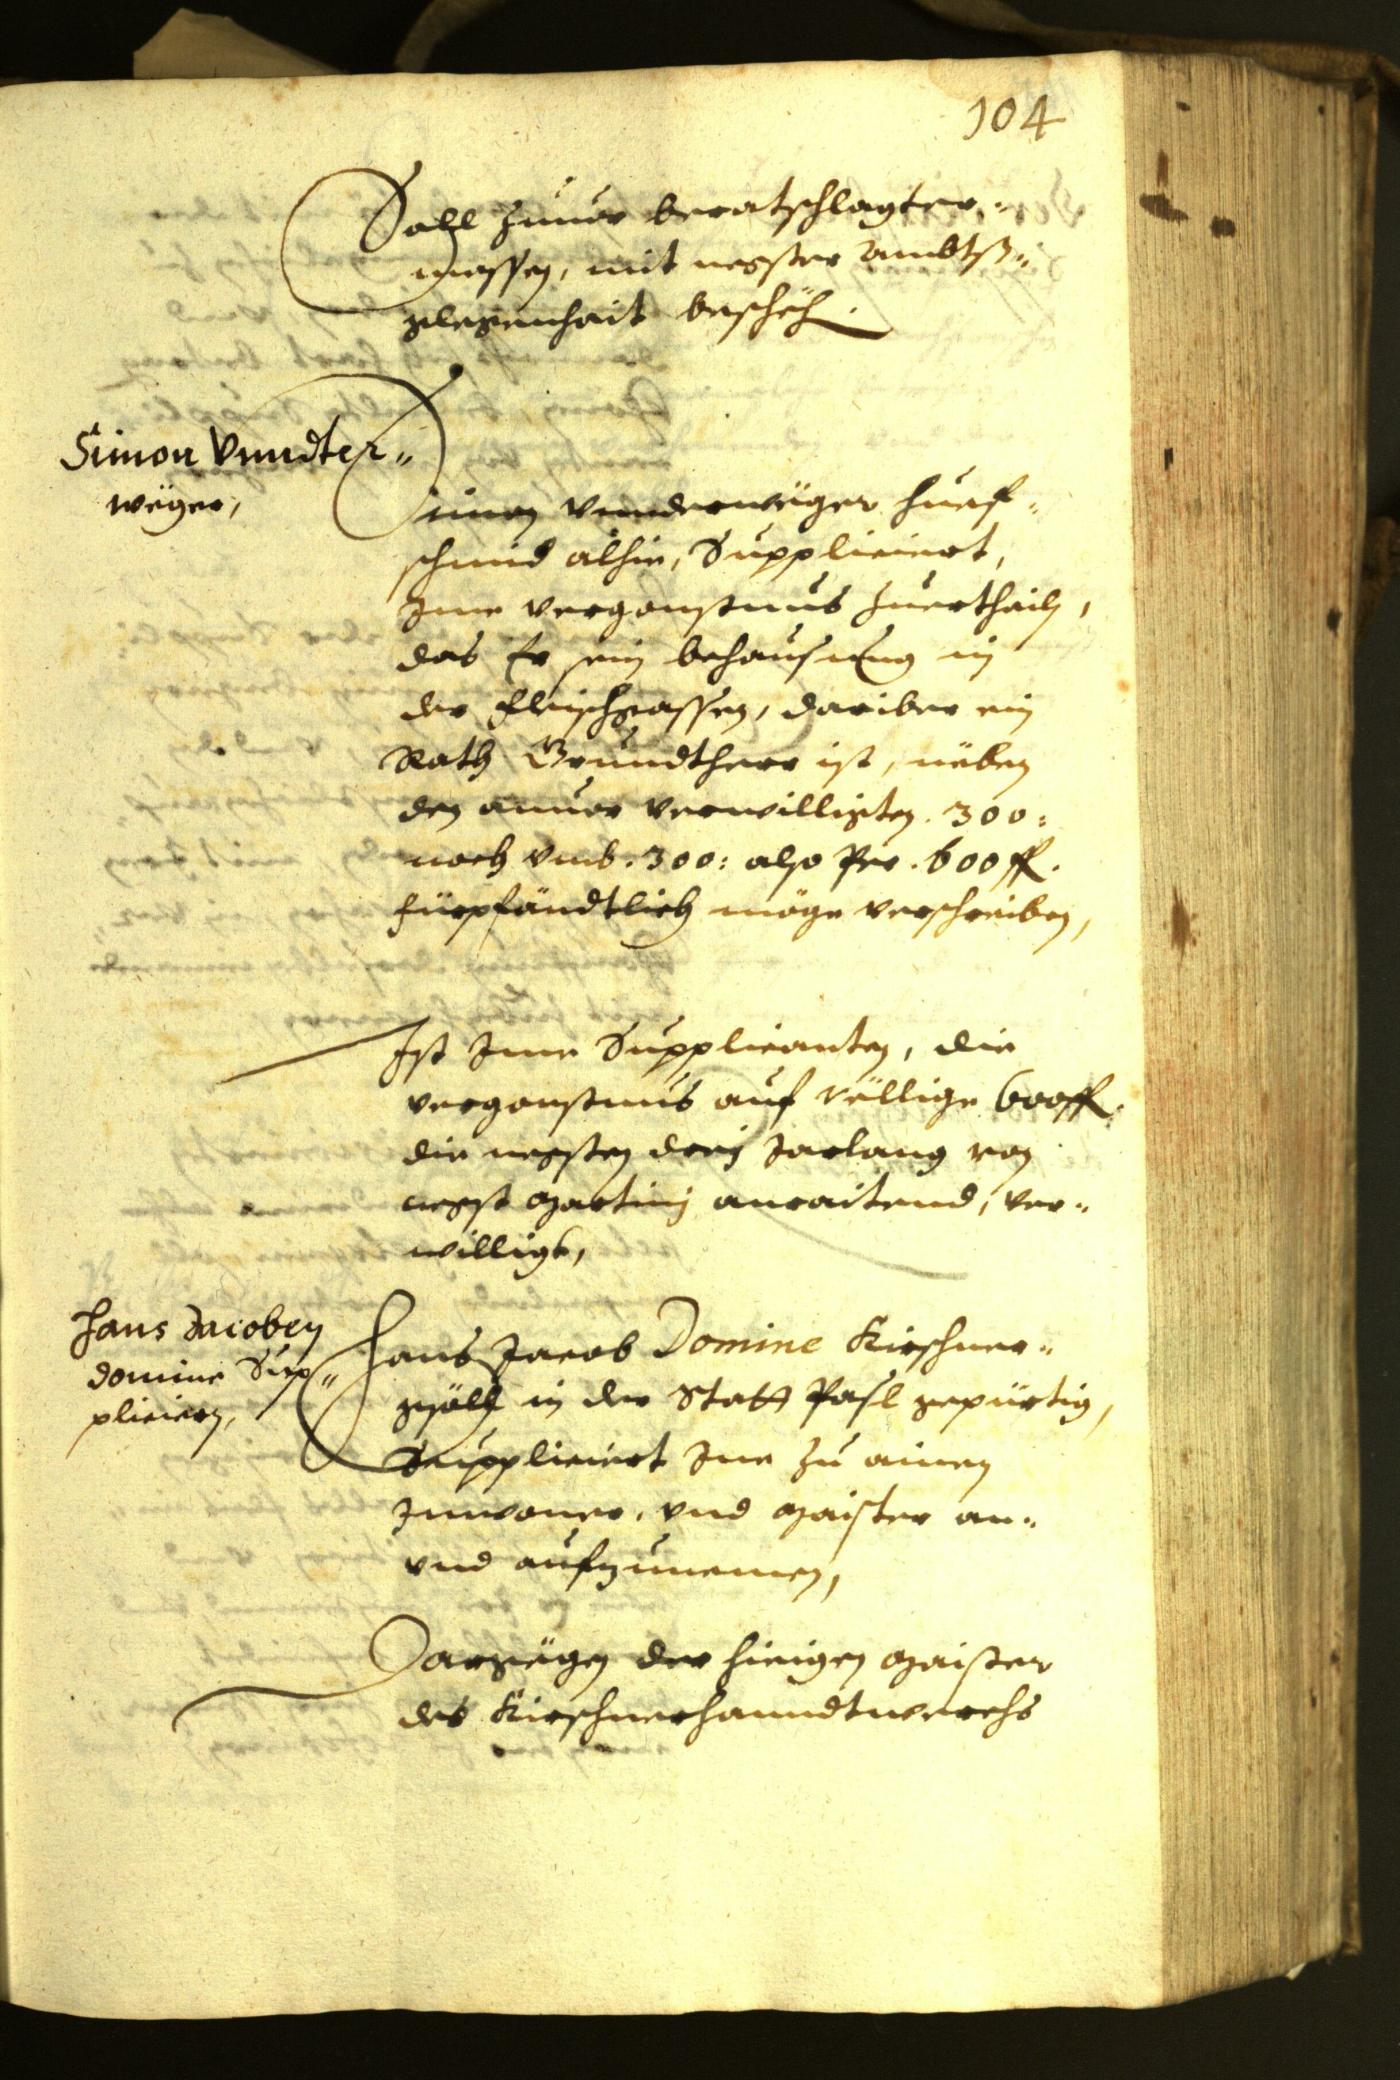 104
Soll zuuor beratschlagter-
massen, mit negster Ambtß-
glegenhait beschëh.
Simon Vnndter-
wëger,
Simon Vnnderwëger Huef-
schmid alhie, Suppliciert,
Ime vergonstnus zuerthailn,
das Er sein behausung in
der Fleischgassen, dariber ein
Rath Grundtherr ist, nëben
den anuor verwilligten. 300:
noch vmb. 300: also Per. 600 fl.
fürpfändtlich möge verschreiben,
Ist Ime Supplicanten, die
vergonstnus auf völlige 600 fl.
die negsten drej Jarlang von
negst Martinj anraitend, ver-
willigt,
Hans Jacoben
domine Sup-
pliciern,
Hans Jacob Domine Kirschner-
gsöll in der Statt Pasl gepürtig,
Suppliciert Ine zu ainen
Inwoner, vnd Maister an-
vnd aufzunemen,
Dargëgen der hieigen Maister
des Kirschnerhanndtwerchs